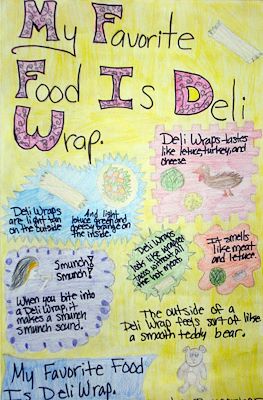 My Favorite
Food Is Deli
Wrap.
Deli Wraps-tastes
like lettuce, turkey, and
cheese
Deli Wraps
are light tan
on the outside
And light
lettuce green and
cheesy orange on
the inside.
Deli Wraps
looks like wrapped
tacos without all
the hot meat.
It smells
like meat
and lettuce.
Smunch!
Smunch!
When you bite into
a Deli Wrap, it
makes a smunch
smunch sound.
The outside of a
Deli Wrap feels sort of like
a smooth teddy bear.
My Favorite Food
Is Deli Wrap.